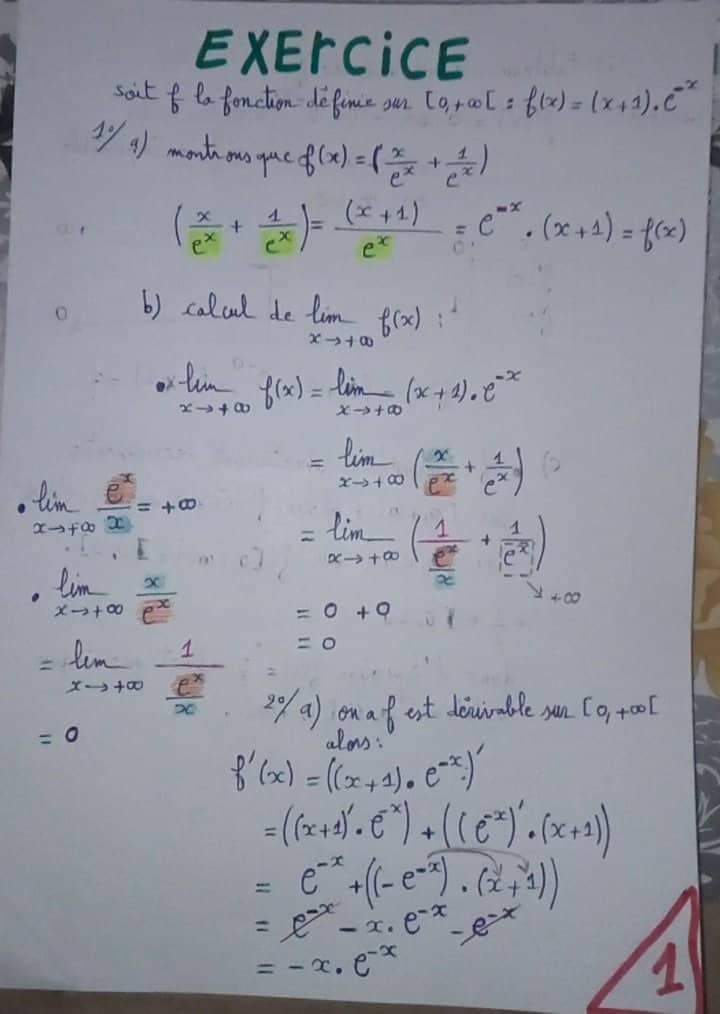 EXErciCE
soit f la fonction définie sur [0,+∞[ : f(x) = (x+1).e^-x
1°/ a) montrons que f(x) = (x/e^x + 1/e^x)
(x/e^x + 1/e^x) = (x+1)/e^x = e^-x . (x+1) = f(x)
b) calcul de lim x→+∞ f(x) :
• lim x→+∞ f(x) = lim x→+∞ (x+1).e^-x
= lim x→+∞ (x/e^x + 1/e^x)
= lim x→+∞ (1/(e^x/x) + 1/e^x) ↘ +∞
= 0 + 0
= 0
• lim x→+∞ e^x/x = +∞
• lim x→+∞ x/e^x
= lim x→+∞ 1/(e^x/x)
= 0
2°/ a) on a f est dérivable sur [0,+∞[
alors:
f'(x) = ((x+1).e^-x)'
= ((x+1)'.e^-x) + ((e^-x)'.(x+1))
= e^-x + ((-e^-x).(x+1))
= e^-x - x.e^-x - e^-x
= -x.e^-x
1